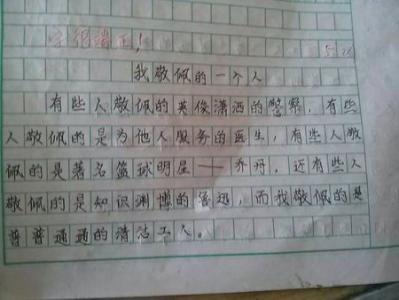 字很端正!
我敬佩的一个人
有些人敬佩的英俊潇洒的警察，有些
人敬佩的是为他人服务的医生，有些人敬
佩的是著名篮球明星——乔丹，还有些人
敬佩的是知识渊博的鲁迅，而我敬佩的是
普普通通的清洁工人。